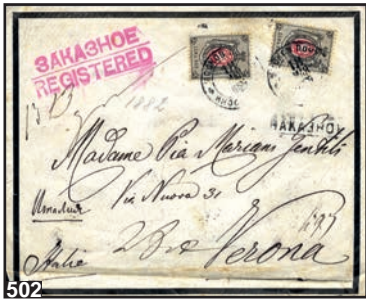 ЗАКАЗНОЕ
REGISTERED
1882
ЗАКАЗНОЕ
Madame Pia Mariani Gentili
Via Nuova 31
Италия
Verona
Italie
502